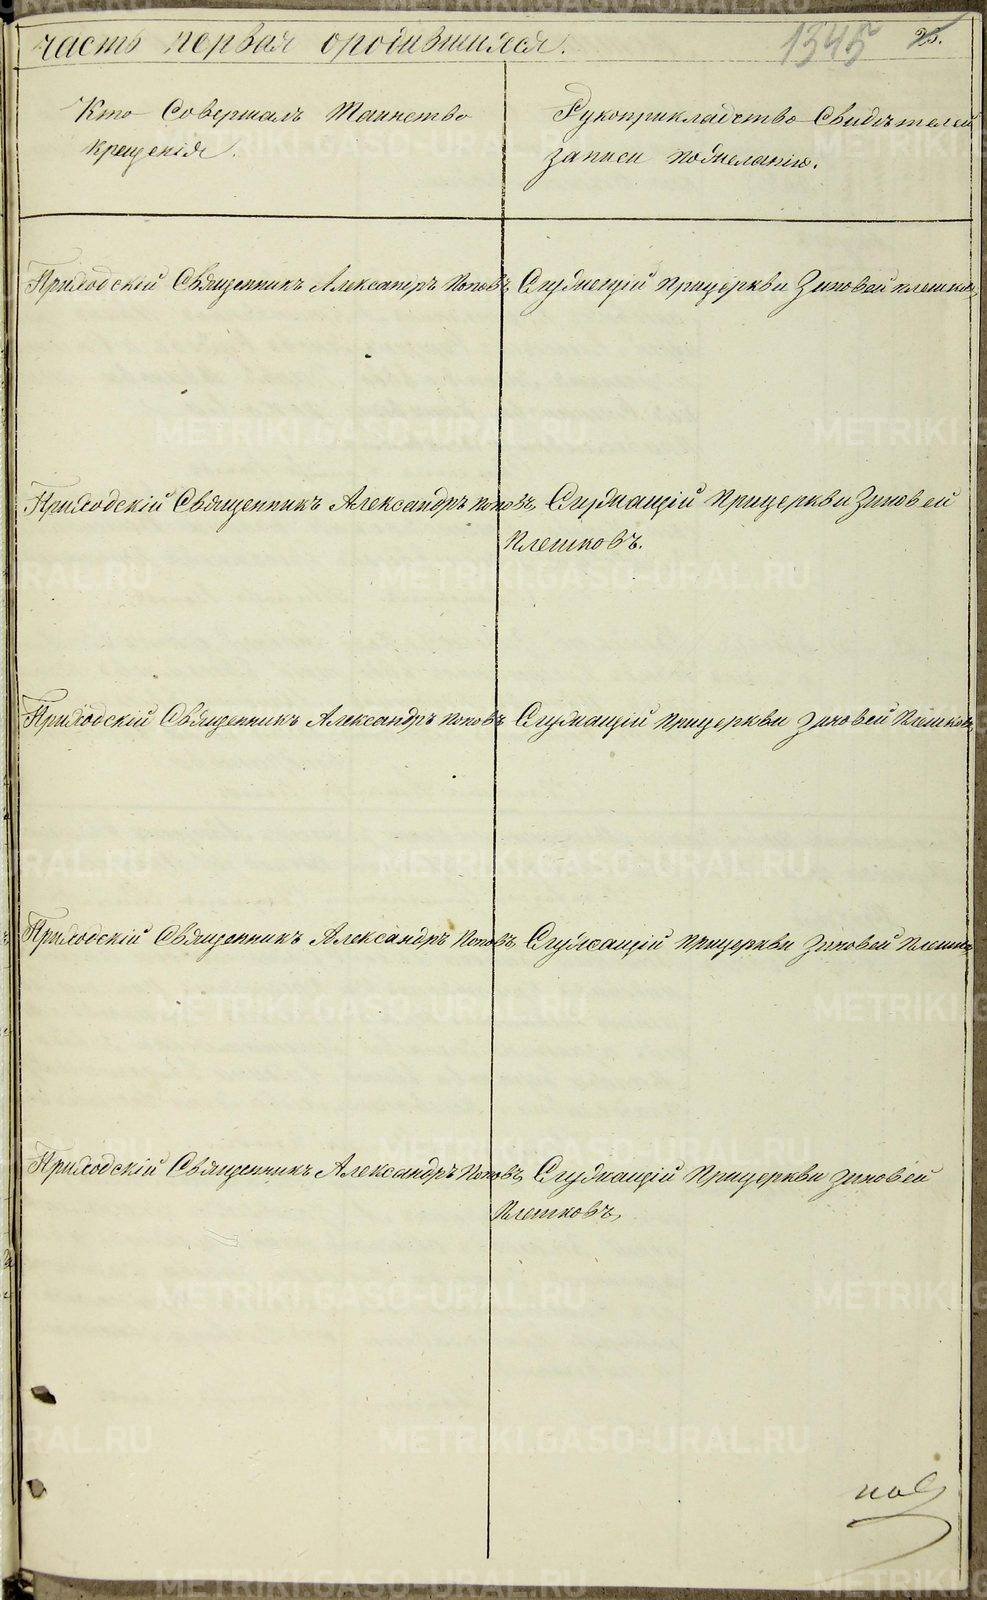 часть первая ородившихся. 1545 25.
Кто Совершалъ Таинство
крещенія.
Рукоприкладство Свидѣтелей
записи пожеланію.
Приходскій Священникъ Александръ Поповъ Служещій Прицеркви Зиновей плешковъ
Приходскій Священникъ Александръ поповъ, Служащій Прицеркви Зиновей
Плешковъ.
Приходскій Священникъ Александръ поповъ Служащій прицеркви Зиновей Плешковъ
Приходскій Священникъ Александръ Поповъ Служащій прицеркви Зиновей Плешковъ
Приходскій Священникъ Александръ Поповъ, Служащій Прицеркви Зиновей
Плешковъ,
METRIKI.GASO-URAL.RU